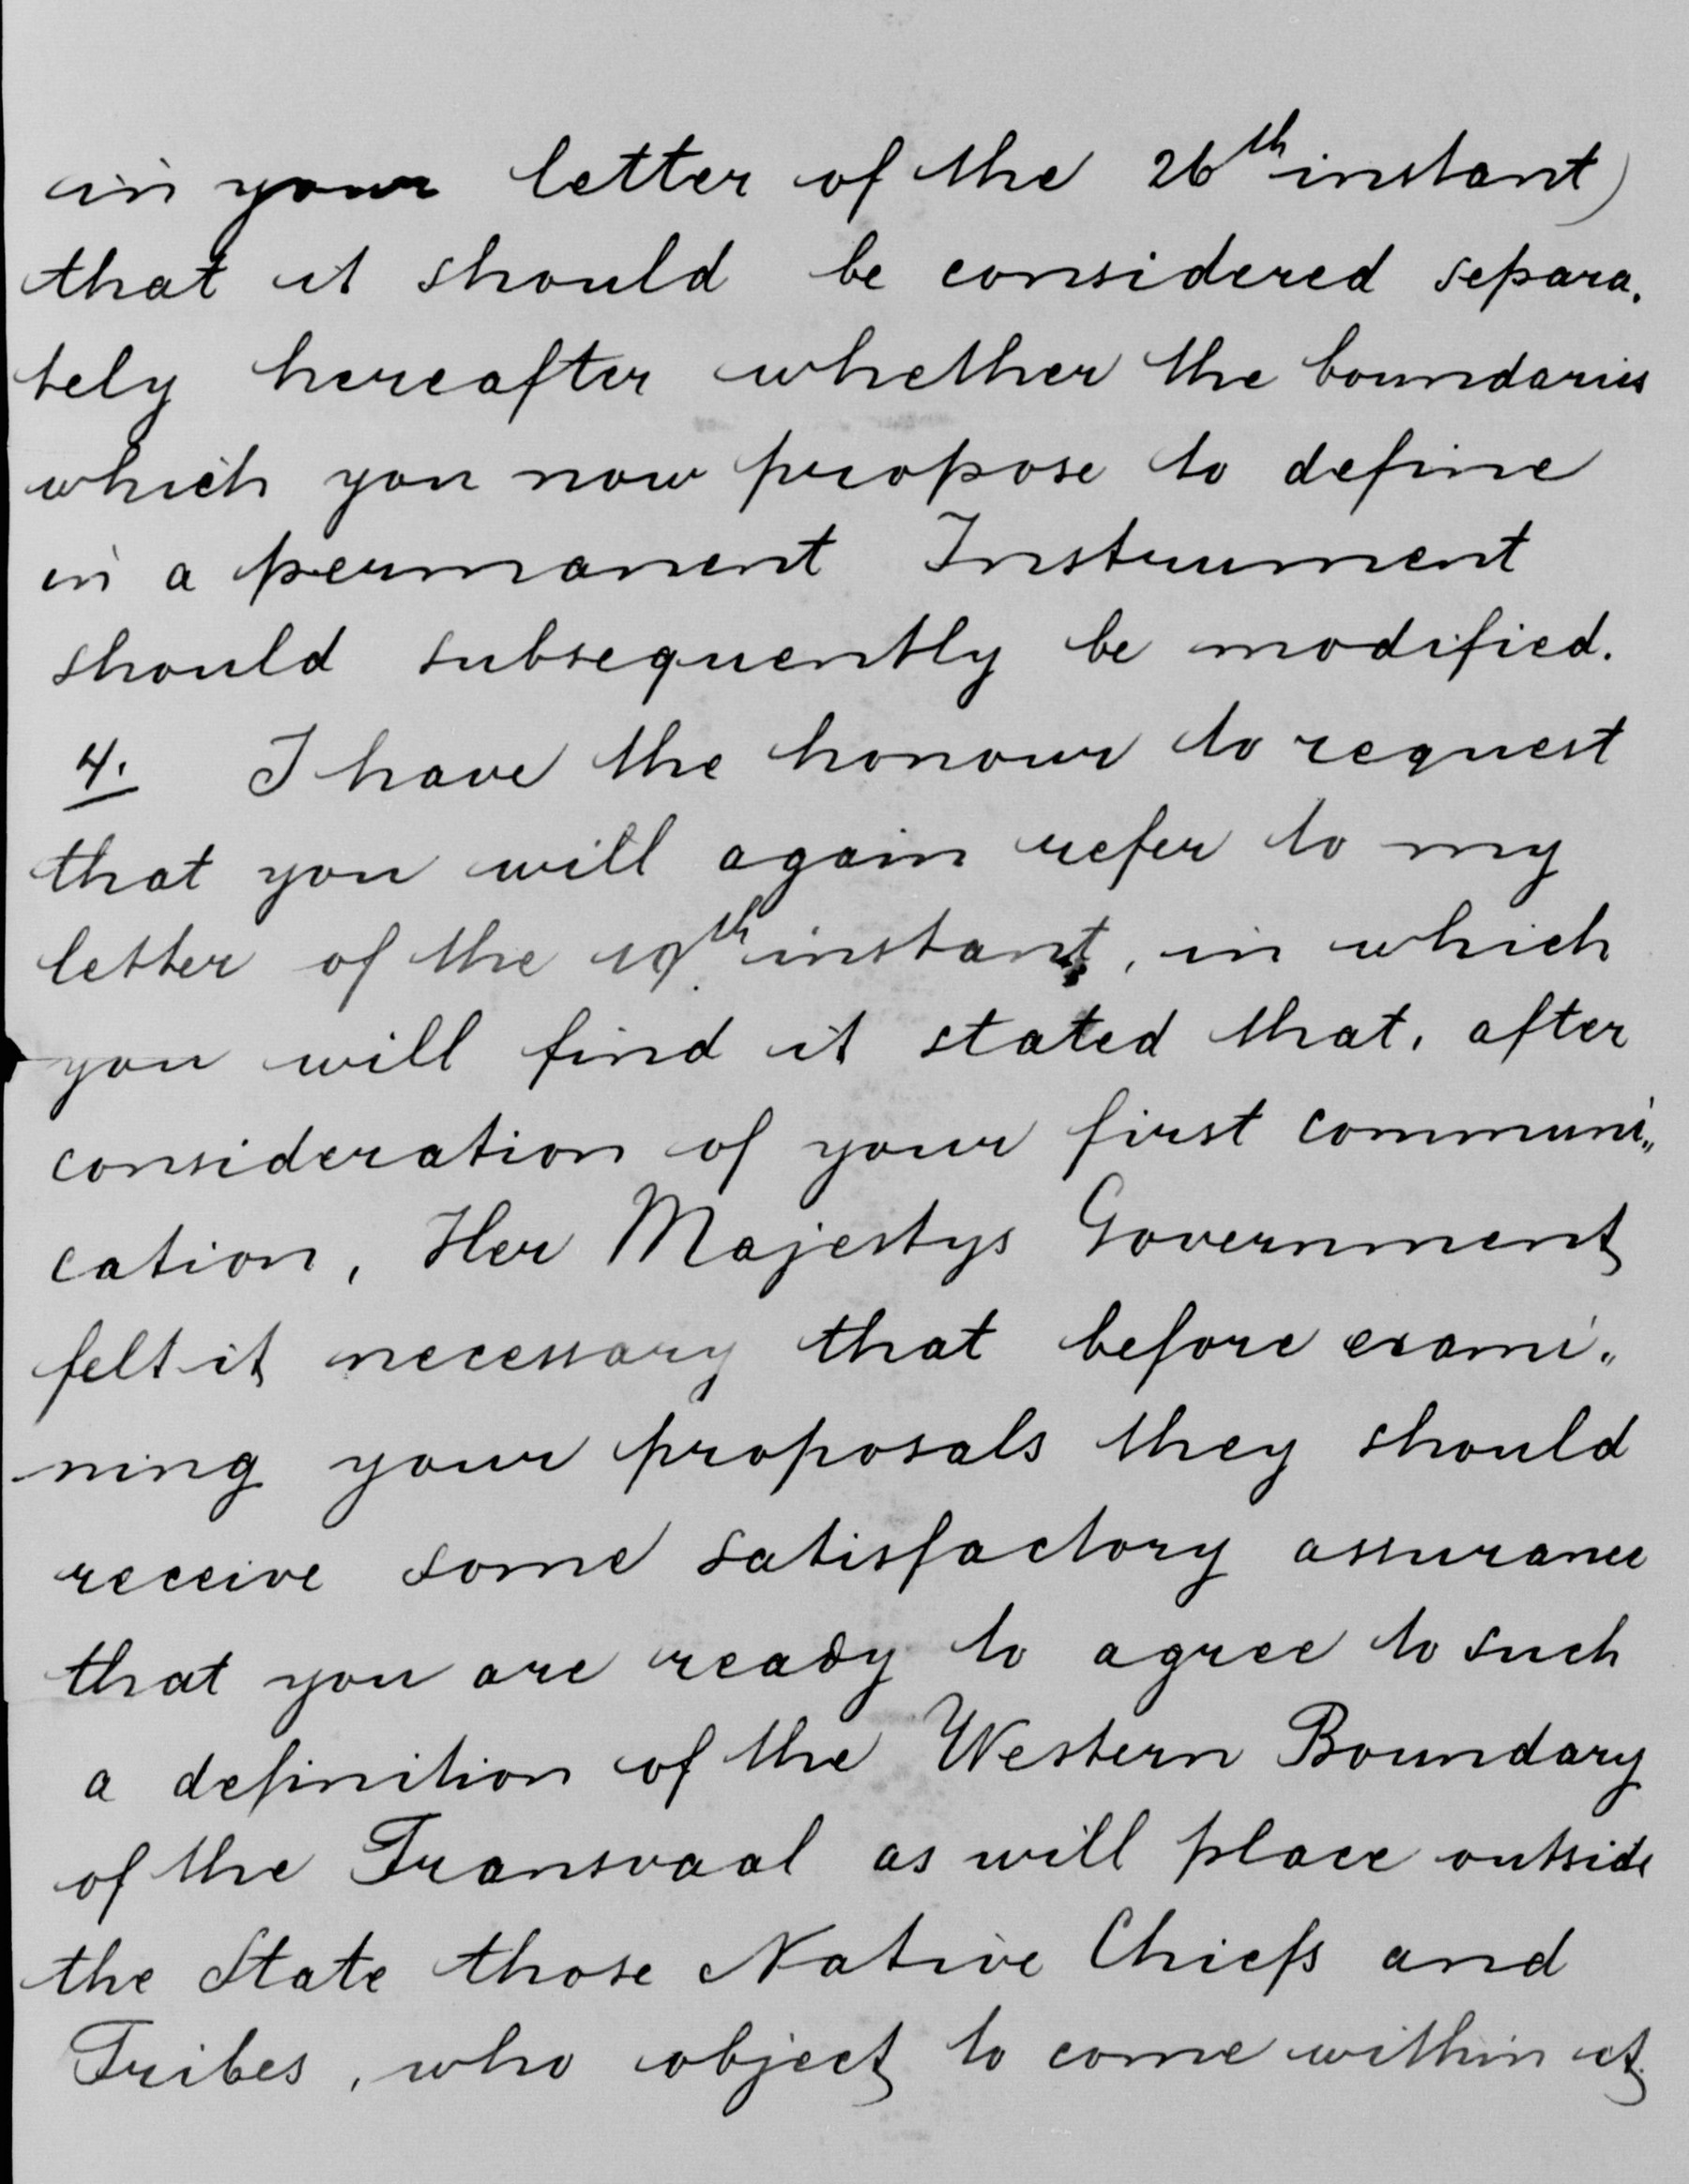 in your letter of the 26th instant)
that it should be considered separa.
tely hereafter whether the boundaries
which you now propose to define
in a permanent Instrument
should subsequently be modified.
4. I have the honour to request
that you will again refer to my
letter of the 19th instant, in which
you will find it stated that, after
consideration of your first communi„
cation, Her Majestys Government
felt it necessary that before exami„
ning your proposals they should
receive some satisfactory assurance
that you are ready to agree to such
a definition of the Western Boundary
of the Transvaal as will place outside
the State those Native Chiefs and
Tribes, who object to come within it